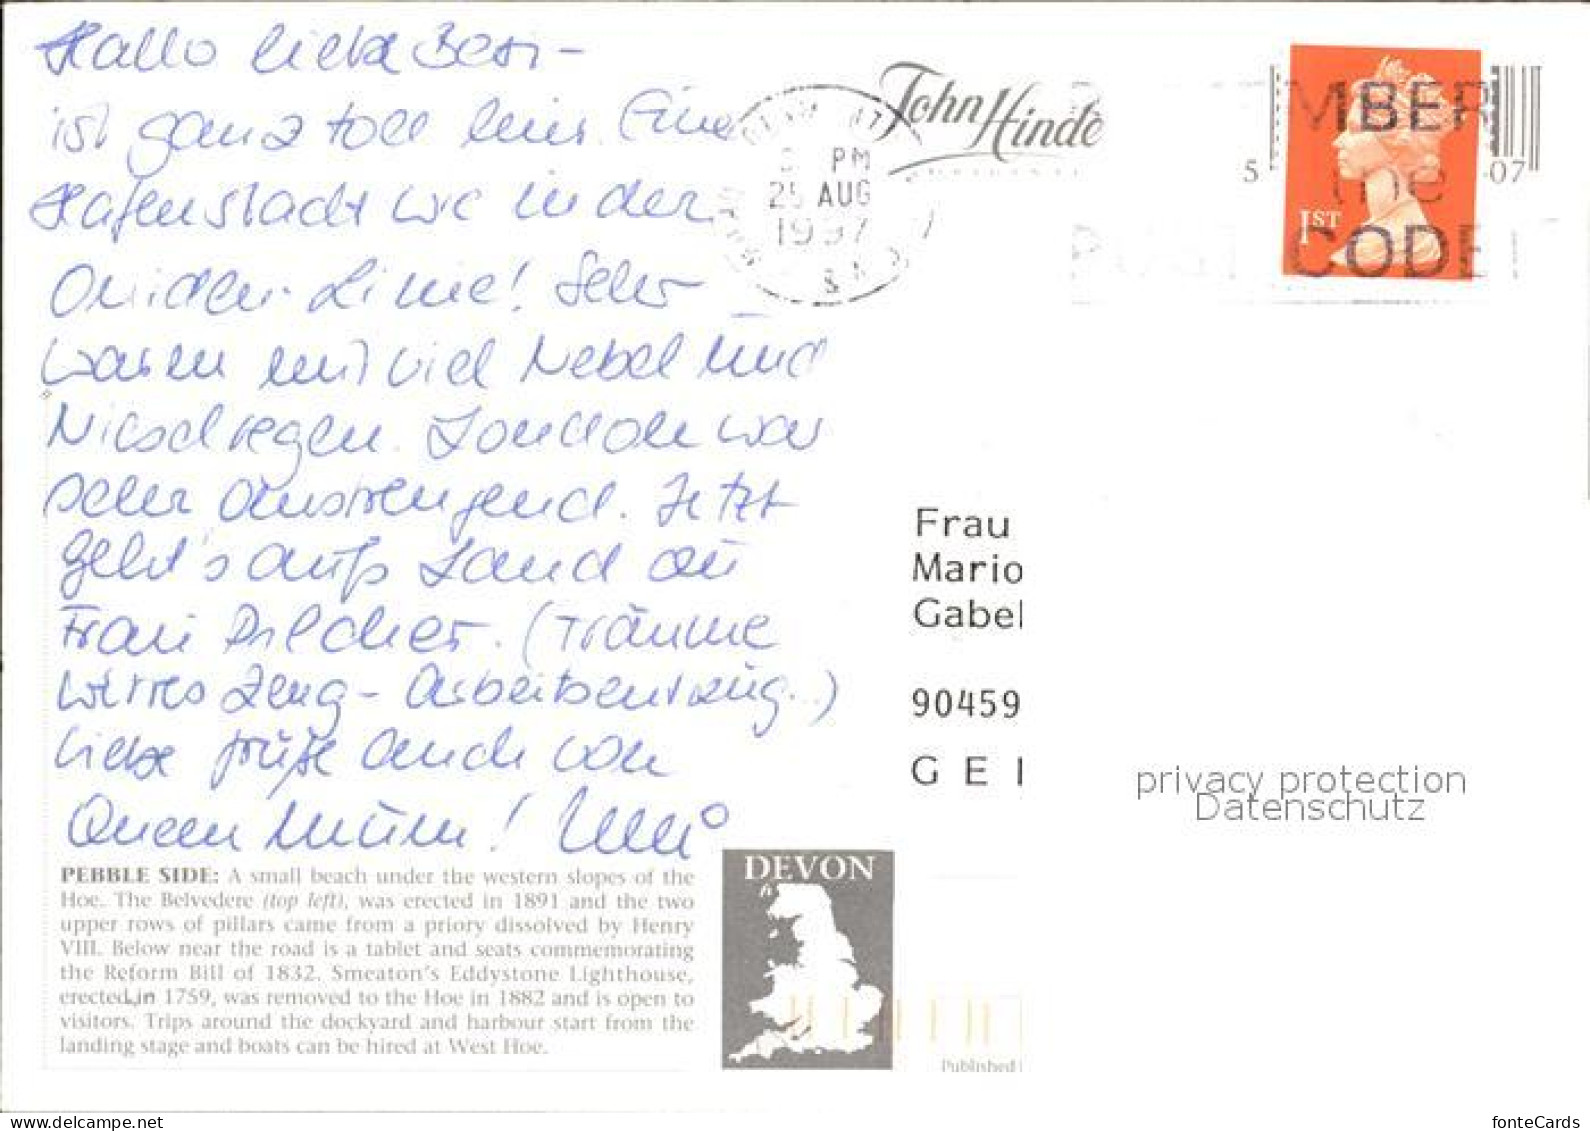 Hallo liebe Besi-
ist ganz toll hier. Eine
Hafenstadt wie in der
Onidien-Linie! Sehr
waren wir viel Nebel und
Nieselregen. London war
sehr anstrengend. Jetzt
geht's aufs Land zu
Frau Pilcher. (Träume
wirres Zeug - Arbeitsentzug...)
Liebe Grüße auch von
Queen Mum!
John Hinde
ORIGINAL
PM
25 AUG
1997
MBER
the
CODE
5
-07
1ST
Frau
Mario
Gabel
90459
G E
privacy protection
Datenschutz
PEBBLE SIDE: A small beach under the western slopes of the
Hoe. The Belvedere (top left), was erected in 1891 and the two
upper rows of pillars came from a priory dissolved by Henry
VIII. Below near the road is a tablet and seats commemorating
the Reform Bill of 1832. Smeaton's Eddystone Lighthouse,
erected in 1759, was removed to the Hoe in 1882 and is open to
visitors. Trips around the dockyard and harbour start from the
landing stage and boats can be hired at West Hoe.
DEVON
Published
www.delcampe.net
fonteCards